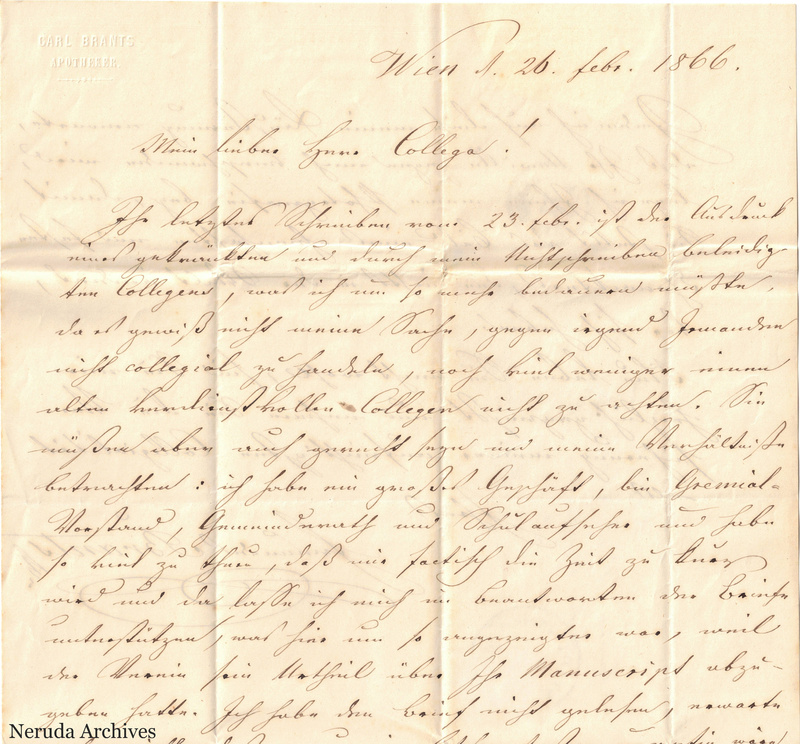 CARL BRANTS
APOTHEKER.
Wien d. 26. febr. 1866.
Mein lieber Herr Collega!
Ihr letztes Schreiben vom 23. febr. ist der Ausdruck
eines gekränkten und durch mein Nichtschreiben beleidig-
ten Collegens, was ich um so mehr bedauern müßte,
da es gewiß nicht meine Sache, gegen irgend Jemanden
nicht collegial zu handeln, noch viel weniger einen
alten verdienstvollen Collegen nicht zu achten. Sie
müßen aber auch gerecht seyn und meine Verhältniße
betrachten: ich habe ein großes Geschäft, bin Gremial-
Vorstand, Gemeinderath und Schulaufseher und habe
so viel zu thun, daß mir factisch die Zeit zu kurz
wird und da lasse ich mich im beantworten der Briefe
unterstützen, was hier um so angezeigter war, weil
der Verein sein Urtheil über Ihr Manuscript abzu-
geben hatte. Ich habe den Brief nicht gelesen, erwarte
Neruda Archives